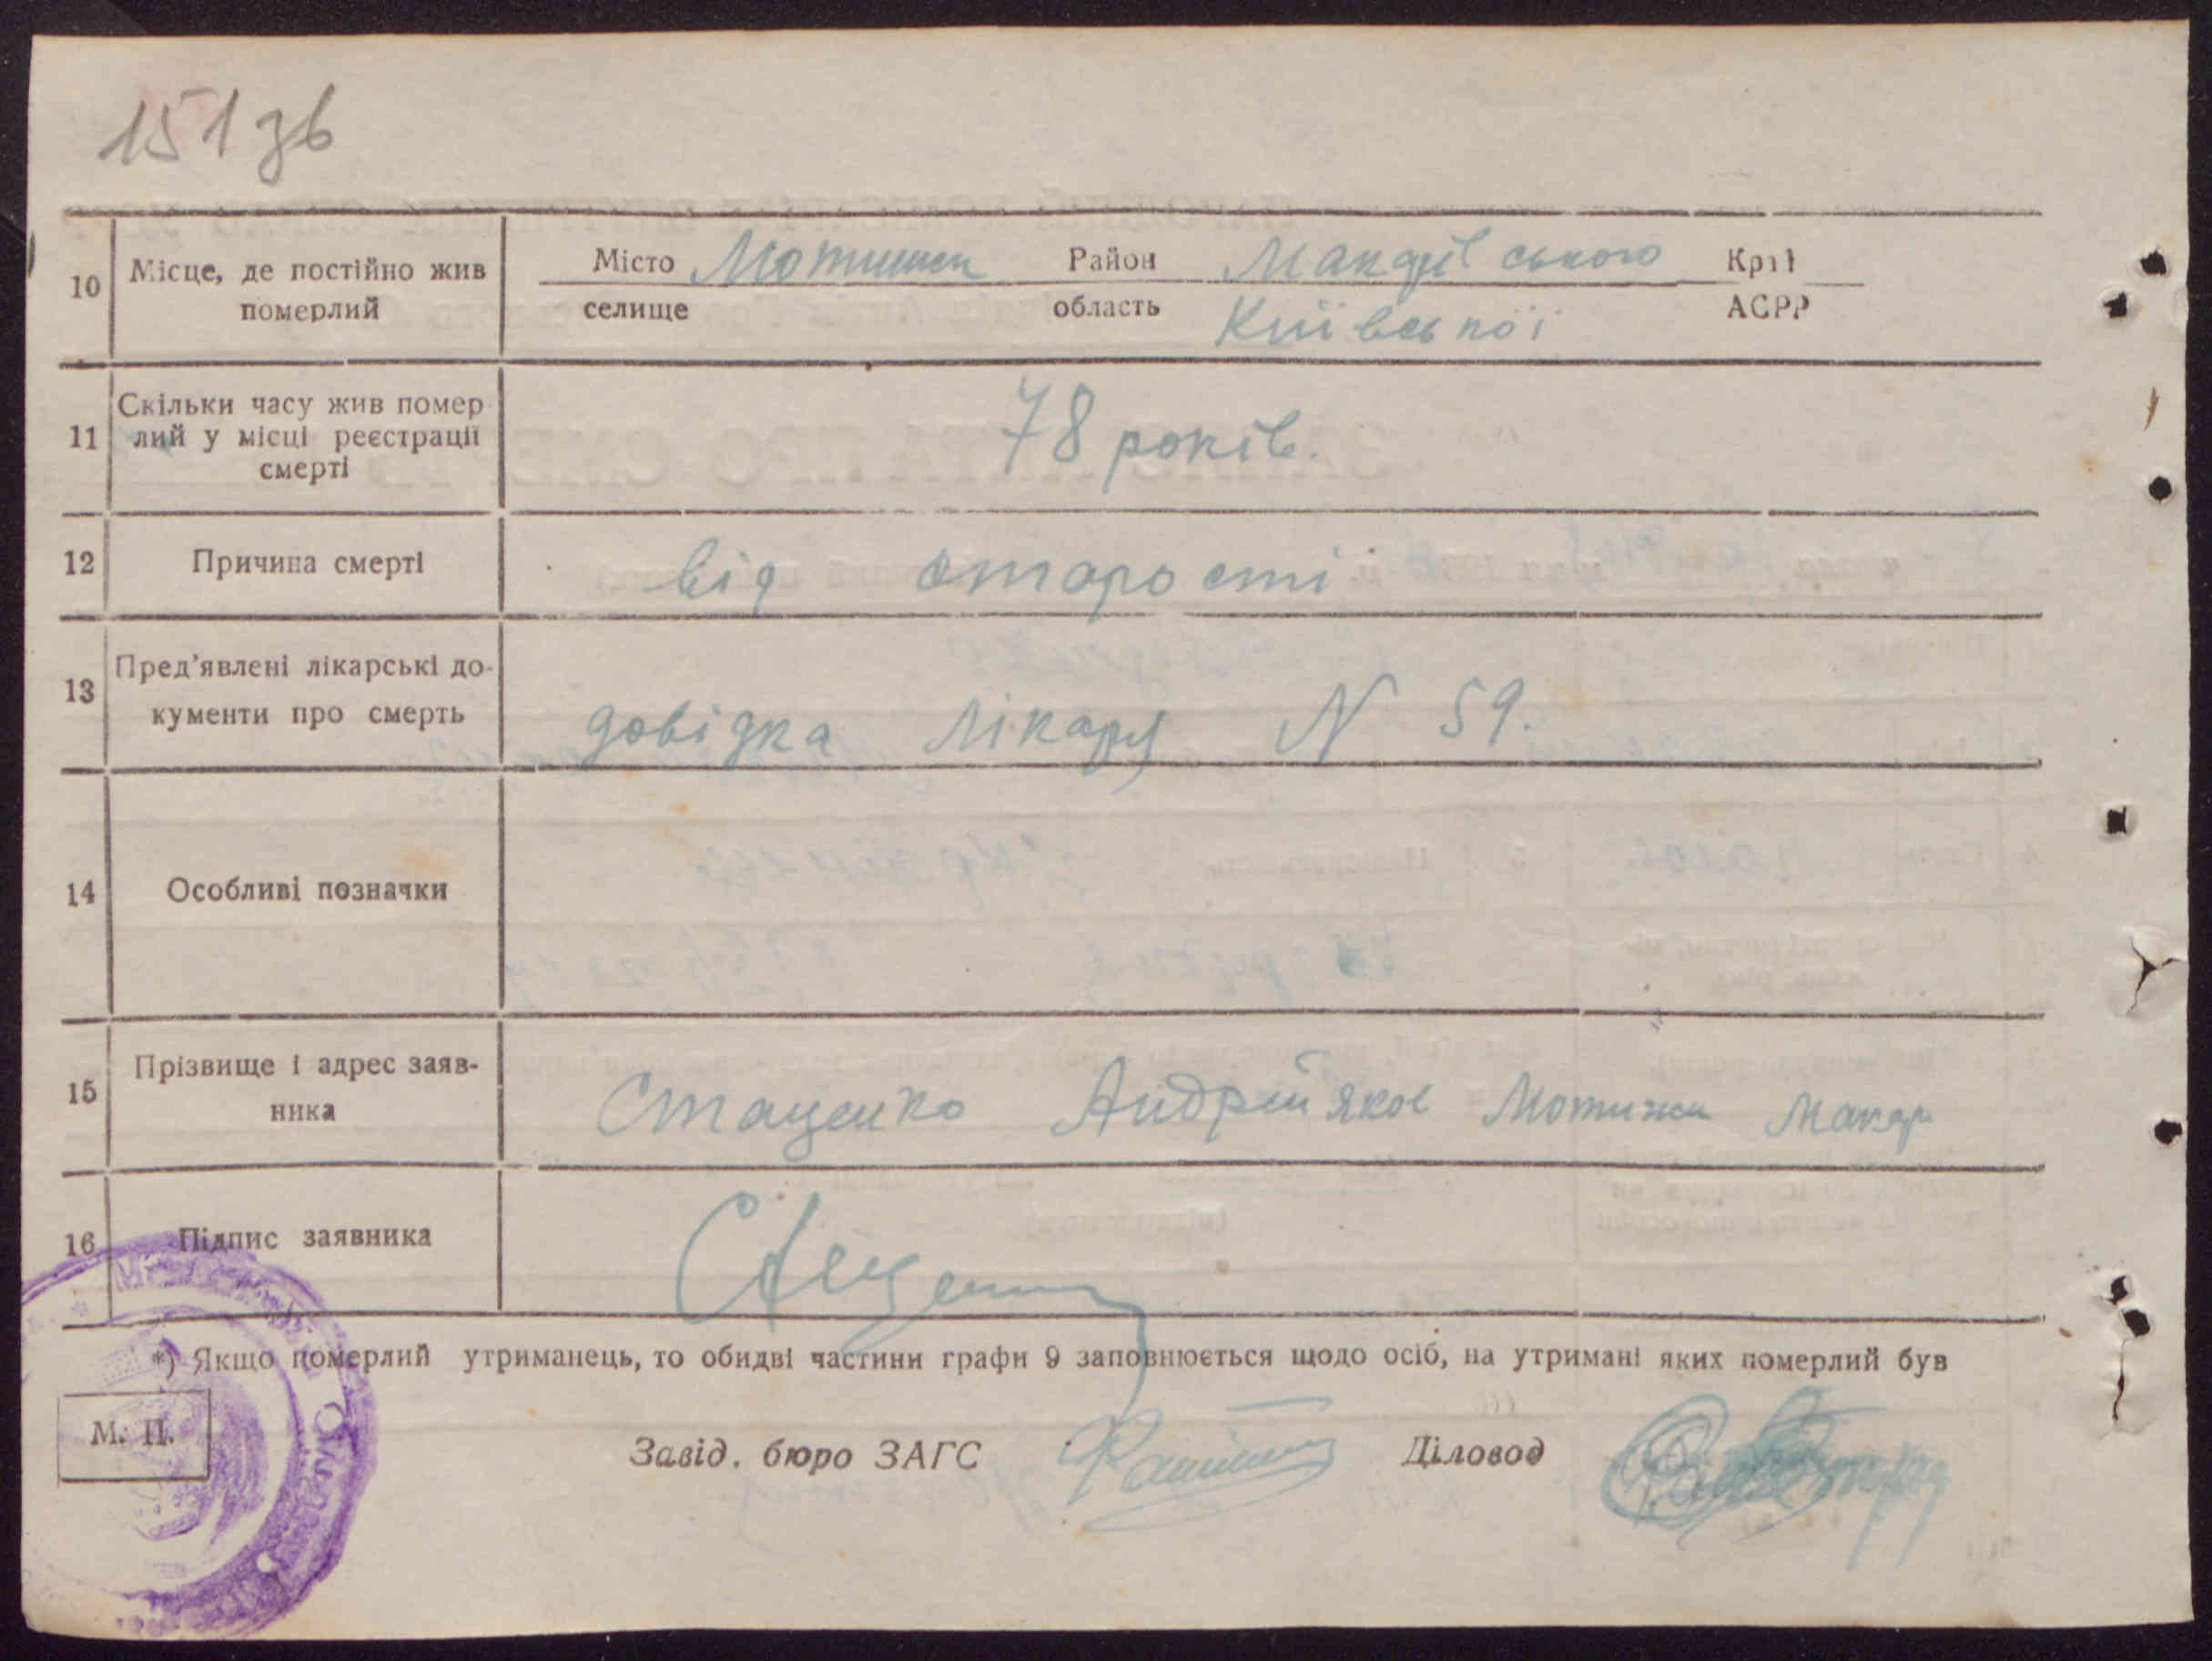 151 зв
10 Місце, де постійно жив померлий
Місто Мотижин Район Макарівського Край
селище область Київської АСРР
11 Скільки часу жив помер
лий у місці реєстрації
смерті
78 років.
12 Причина смерті від старості
13 Пред'явлені лікарські до-
кументи про смерть
довідка лікаря N 59.
14 Особливі позначки
15 Прізвище і адрес заяв-
ника
Стаценко Андрій Яков Мотижин Макар
16 Підпис заявника
*) Якщо померлий утриманець, то обидві частини графи 9 заповнюється щодо осіб, на утримані яких померлий був
М. П.
Завід. бюро ЗАГС Діловод